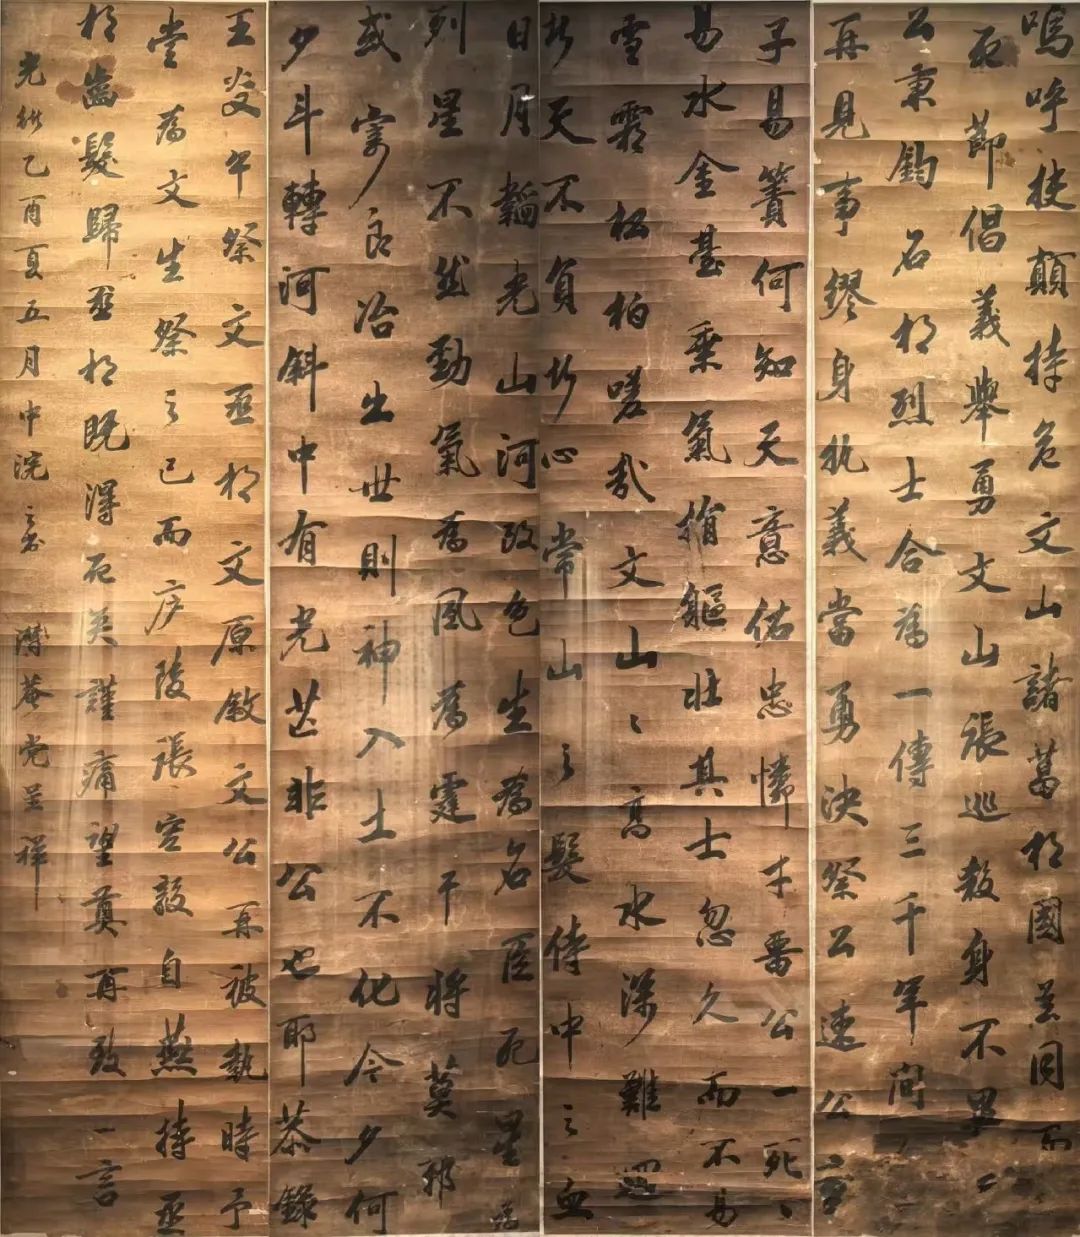 嗚呼扶顛持危文山諸葛相國雖同而
死節倡義舉勇文山張巡殺身不異
公秉鈞石相烈士合為一傳三千年間
再見事繆身執義當勇決祭公速公童
子易簀何知天意佑忠憐才留公一死
易水金臺乘氣捐軀壯其士忽久而不易
雪霜松柏嗟哉文山〻高水深難迴
於天不負於心常山之髮侍中之血
日月韜光山河改色生為名臣死星為
列星不然勁氣為風為霆干將莫邪
或寄良冶出世則神入土不化今夕何
夕斗轉河斜中有光芒非公也耶恭錄
王炎午祭文丞相文原敘文公再被執時予
嘗為文生祭之已而庐陵張空毅自燕持丞
相齒髮歸丞相既得死矣謹痛望奠再致一言
光緒乙酉夏五月中浣之吉 菴党呈祥